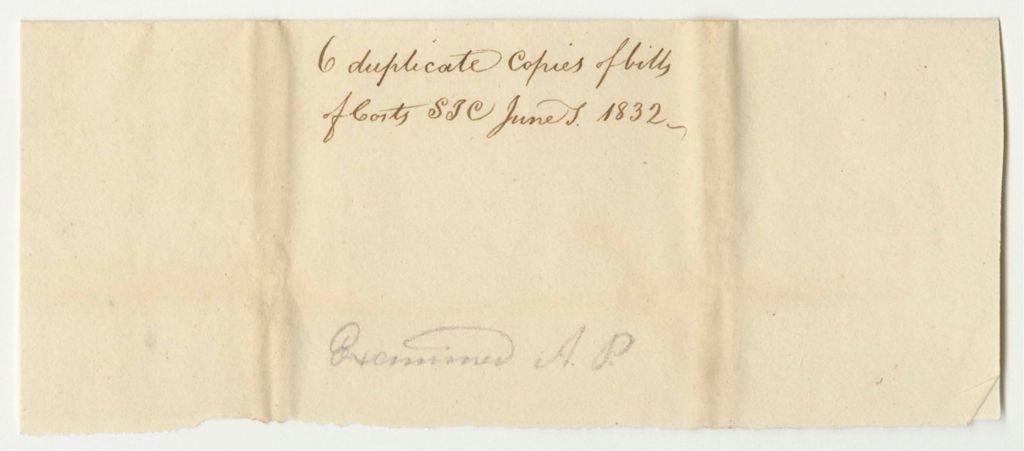 6 duplicate Copies of bills
of Costs SJC June T. 1832
Examined A. P.